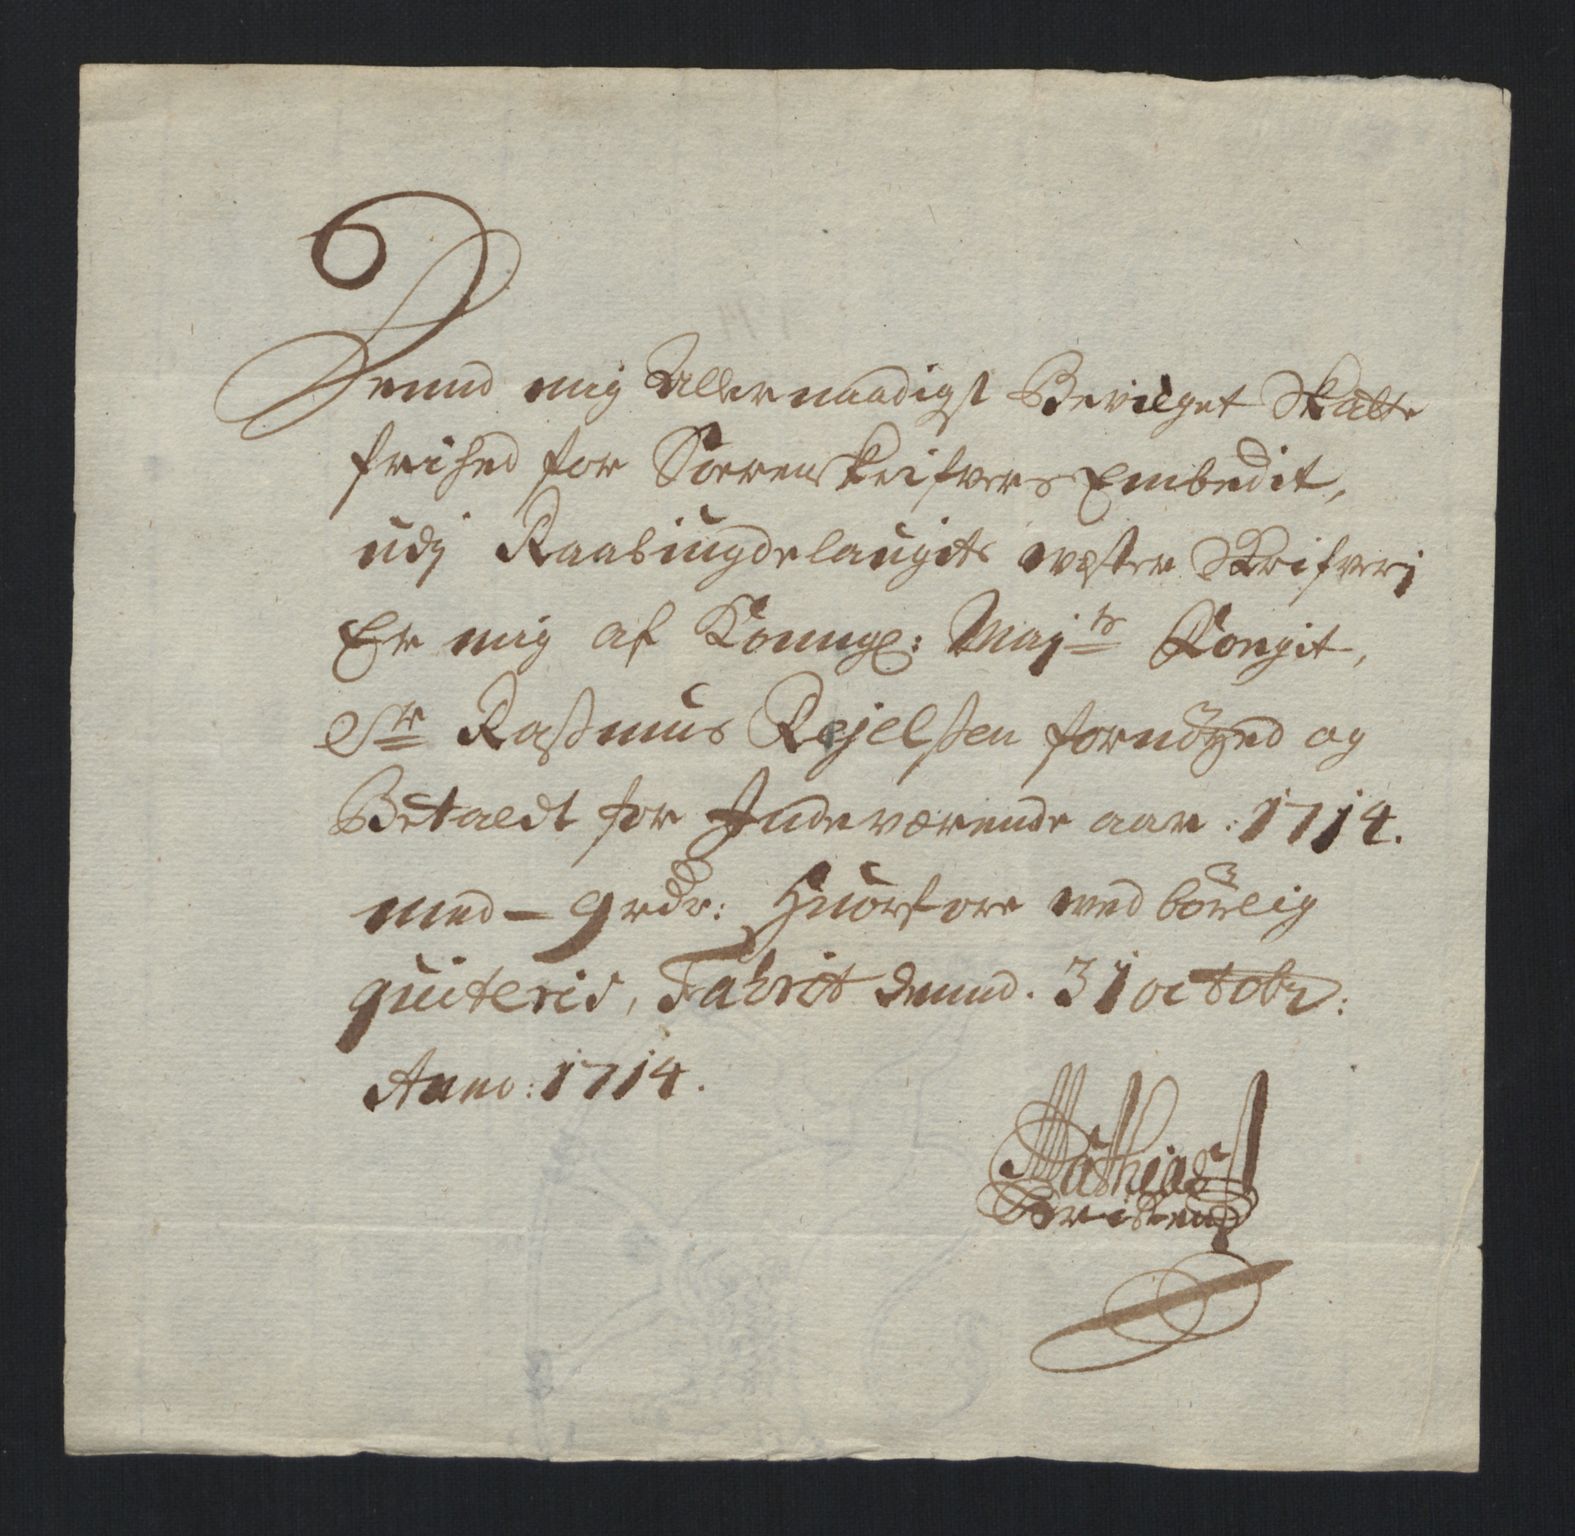 Dennd mig Allernaadigst Bevilget Skatte
frihed for Sorrenskrifvers Embedit,
udj Raabiugdelaugits vester Skrifverj
Er mig af Konngl: Majts Fougit,
Sr Rasmus Rejelsen fornöyed og
Betaldt for Indeværende aar: 1714.
med – 9 rdr: Huorfore ved börlig
quiteris, Fahret dennd. 31 octobr:
Anno: 1714.
Mathias
Cristens